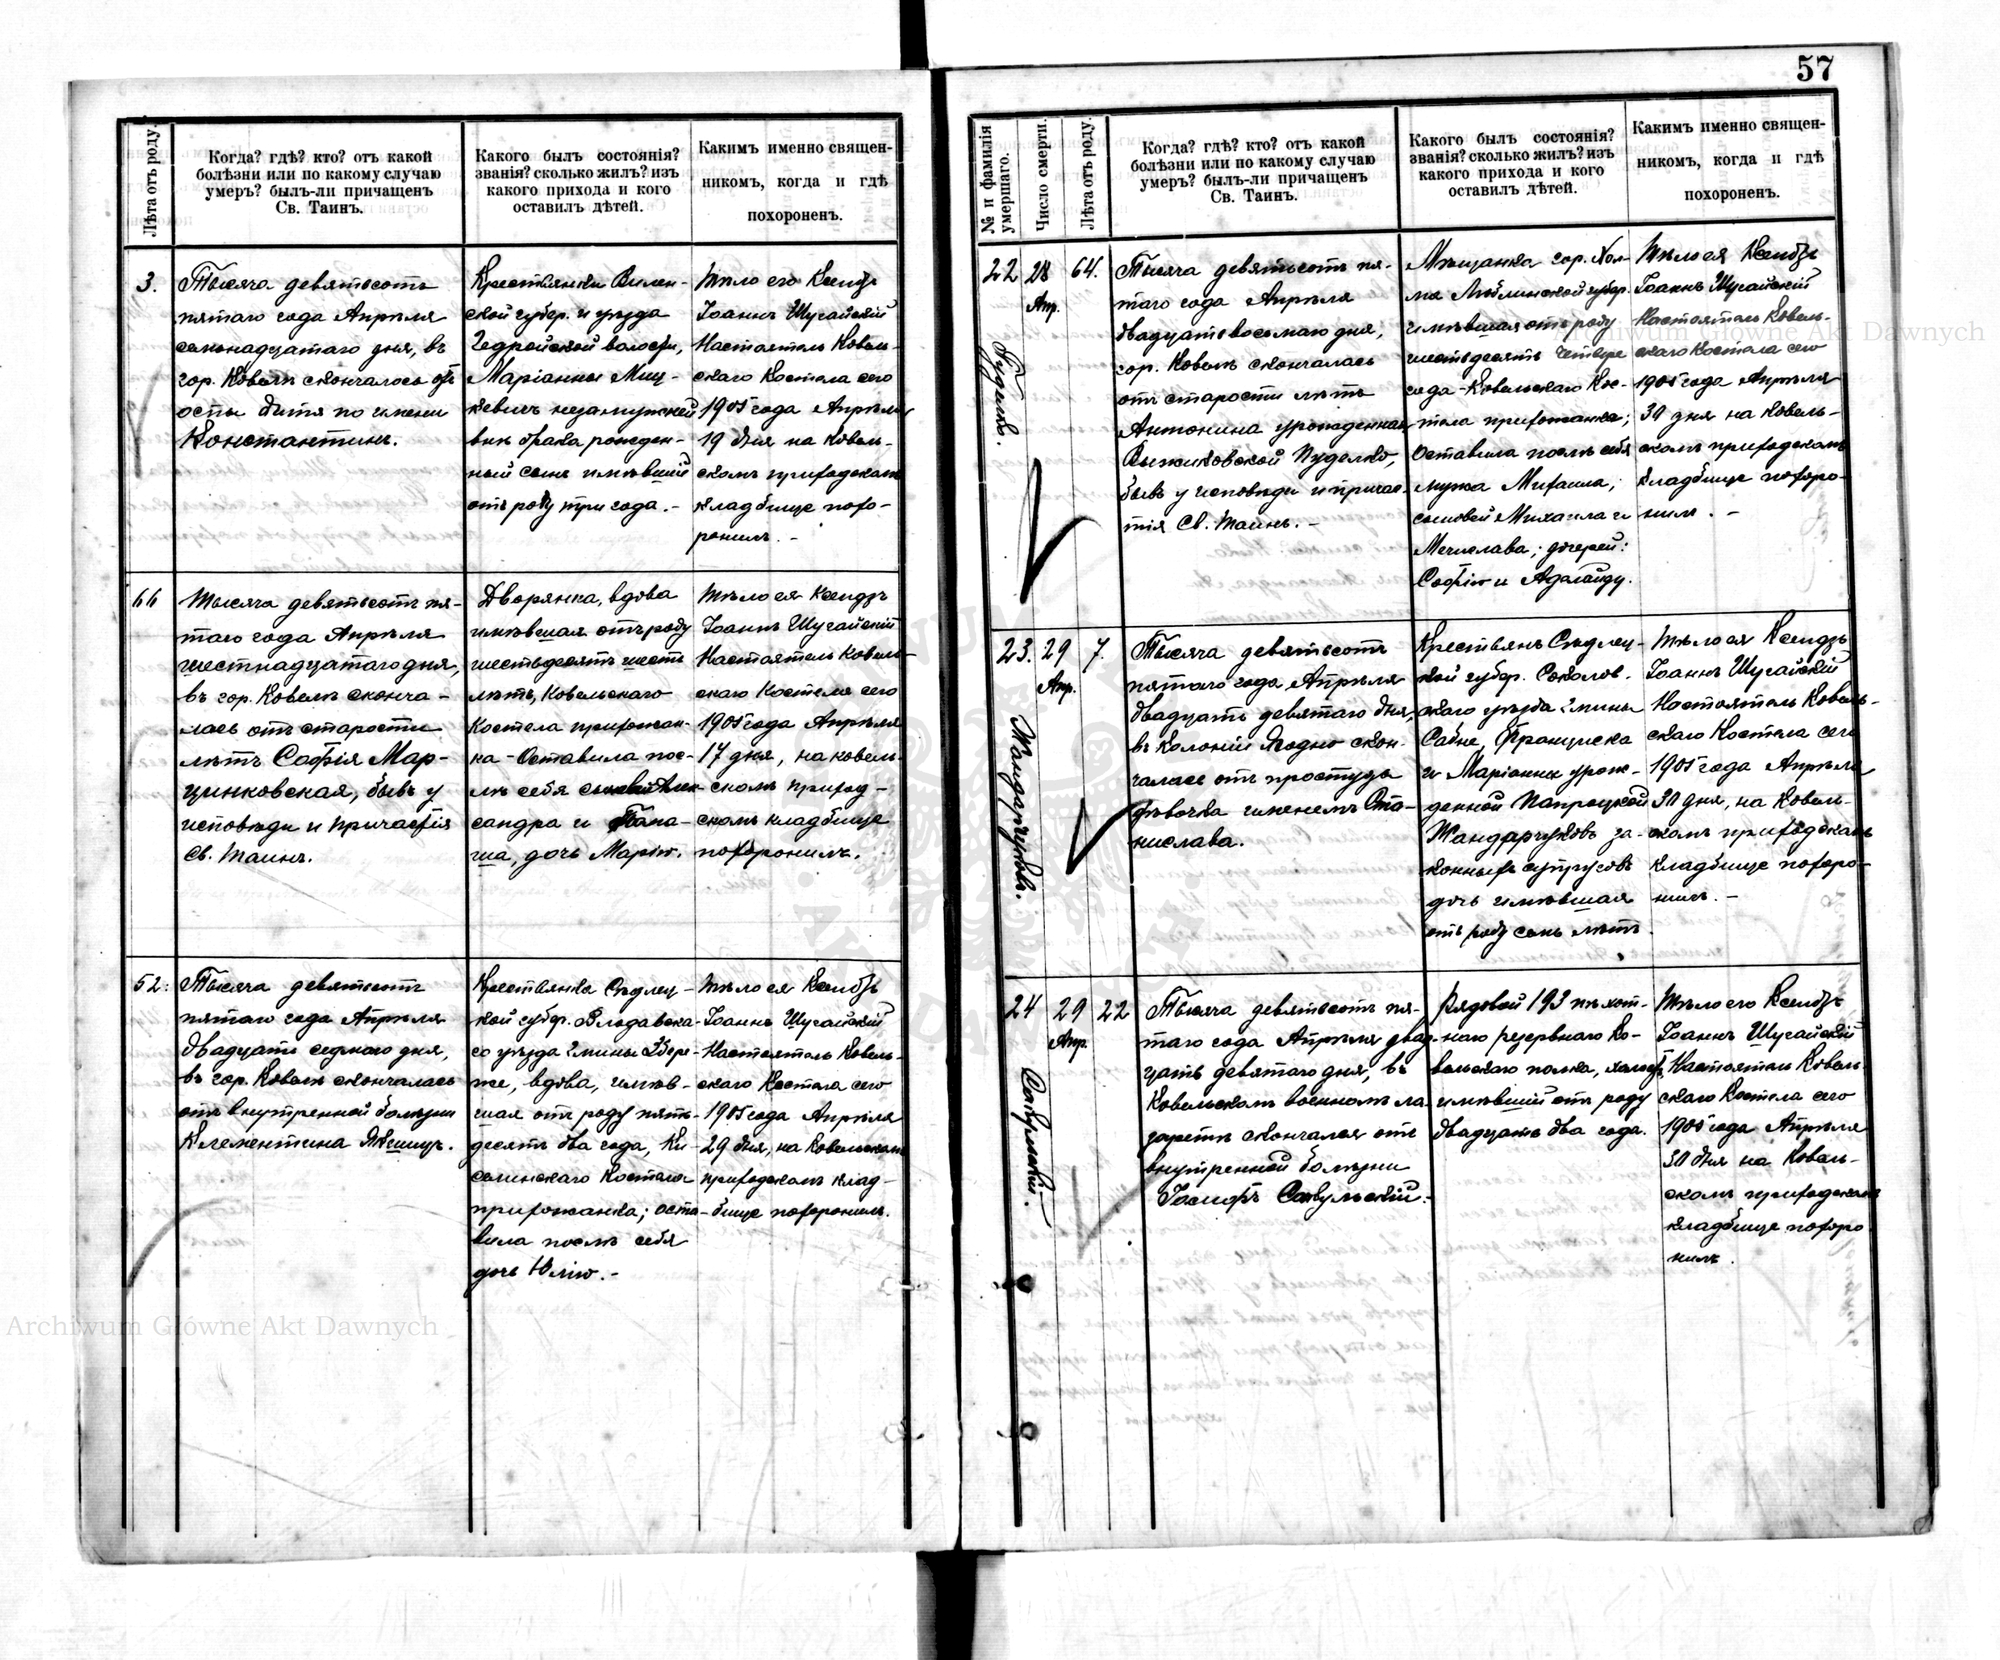 57
Лѣта отъ роду.
Когда? гдѣ? кто? отъ какой
болѣзни или по какому случаю
умеръ? былъ-ли причащенъ
Св. Таинъ.
Какого былъ состоянія?
званія? сколько жилъ? изъ
какого прихода и кого
оставилъ дѣтей.
Какимъ именно священ-
никомъ, когда и гдѣ
похороненъ.
3.
Тысяча девятьсотъ
пятаго года Апрѣля
семнадцатаго дня, въ
гор. Ковелѣ скончалось отъ
оспы дитя по имени
Константинъ.
Крестьянки Вилен-
ской губер. и уѣзда
Гедройской волости,
Маріанны Миц-
кевичъ незамужней
внѣ брака рожден-
ный сынъ имѣвшій
отъ роду три года. -
Тѣло его Ксендзъ
Іоаннъ Шугайскій
Настоятель Ковель-
скаго Костела сего
1905 года Апрѣля
19 дня на Ковель-
скомъ приходскомъ
кладбище похо-
ронилъ. -
66
Тысяча девятьсотъ пя-
таго года Апрѣля
шестнадцатаго дня,
въ гор. Ковелѣ сконча-
лась отъ старости
лѣтъ Софія Мар-
цинковская, бывъ у
исповѣди и причастія
Св. Таинъ.
Дворянка, вдова
имѣвшая отъ роду
шестьдесятъ шесть
лѣтъ, Ковельскаго
Костела прихожан-
ка - Оставила пос-
лѣ себя сыновей Алек-
сандра и
дочь Марію.
Тѣло ея Ксендзъ
Іоаннъ Шугайскій
Настоятель Ковель-
скаго Костела сего
1905 года Апрѣля
17 дня, на Ковель-
скомъ приход-
скомъ кладбище
похоронилъ.
52.
Тысяча девятьсотъ
пятаго года Апрѣля
двадцать седмаго дня,
въ гор. Ковелѣ скончалась
отъ внутренной болѣзни
Клементина Якешицъ.
Крестьянка Сѣдлец-
кой губер. Влодавска-
го уѣзда гмины Збере-
же, вдова, имѣв-
шая отъ роду пять-
десятъ два года, Ки-
селинскаго Костела
прихожанка; оста-
вила послѣ себя
дочь Юлію. -
Тѣло ея Ксендзъ
Іоаннъ Шугайскій
Настоятель Ковель-
скаго Костела сего
1905 года Апрѣля
29 дня, на Ковельскомъ
приходскомъ клад-
бище похоронилъ.
№ и фамилія
умершаго.
Число смерти.
Лѣта отъ роду.
Когда? гдѣ? кто? отъ какой
болѣзни или по какому случаю
умеръ? былъ-ли причащенъ
Св. Таинъ.
Какого былъ состоянія?
званія? сколько жилъ? изъ
какого прихода и кого
оставилъ дѣтей.
Какимъ именно священ-
никомъ, когда и гдѣ
похороненъ.
22
Пуделко.
28
Апр.
64.
Тысяча девятьсотъ пя-
таго года Апрѣля
двадцать восьмаго дня,
гор. Ковелѣ скончалась
отъ старости лѣтъ
Антонина урожденная
Выжиковской Пуделко,
бывъ у исповѣди и причас-
тія Св. Таинъ. -
Мѣщанка гор. Хол-
ма Люблинской губер.
имѣвшая отъ роду
шестьдесятъ четыре
года - Ковельскаго Кос-
тела прихожанка;
Оставила послѣ себя
мужа Михаила;
сыновей Михаила и
Мечислава; дочерей:
Софію и Аделаиду.
Тѣло ея Ксендзъ
Іоаннъ Шугайскій
Настоятель Ковель-
скаго Костела сего
1905 года Апрѣля
30 дня на Ковель-
скомъ приходскомъ
кладбище похоро-
нилъ. -
23.
Жандарчуковъ.
29
Апр.
7.
Тысяча девятьсотъ
пятаго года, Апрѣля
двадцать девятаго дня,
въ колоніи Ягодно скон-
чалась отъ простуды
дѣвочка именемъ Ста-
нислава.
Крестьянъ Сѣдлец-
кой губер. Соколов-
скаго уѣзда гмины
Сабне, Франциска
и Маріанны урож-
денной Папроцкой
Жандарчуковъ за-
конныхъ супруговъ
дочь имѣвшая
отъ роду семь лѣтъ.
Тѣло ея Ксендзъ
Іоаннъ Шугайскій
Настоятель Ковель-
скаго Костела сего
1905 года Апрѣля
30 дня, на Ковель-
скомъ приходскомъ
кладбище похоро-
нилъ. -
24
Савульскій.
29
Апр.
22
Тысяча девятьсотъ пя-
таго года Апрѣля двад-
цать девятаго дня, въ
Ковельскомъ военномъ ла-
заретѣ скончался отъ
внутренной болѣзни
Іосифъ Савульскій. -
Рядовой 193 пѣхот-
наго резервнаго Ко-
вельскаго полка, холостъ,
имѣвшій отъ роду
двадцать два года.
Тѣло его Ксендзъ
Іоаннъ Шугайскій
Настоятель Ковель-
скаго Костела сего
1905 года Апрѣля
30 дня на Ковель-
скомъ приходскомъ
кладбище похоро-
нилъ.
Archiwum Główne Akt Dawnych
Archiwum Główne Akt Dawnych